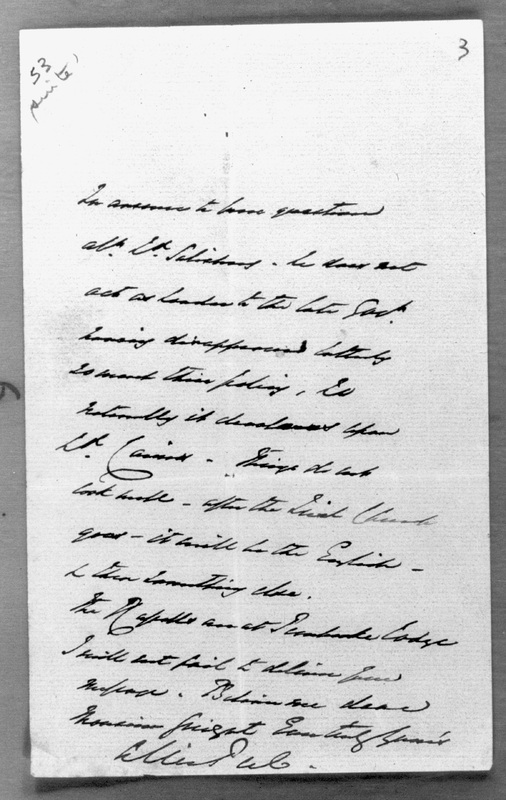 53
3
In answer to your question
abt. Ld. Salisbury - he does not
act as leader to the late Govt.
having disapproved latterly
so much their policy, so
naturally it devolves upon
Ld. Cairns - Things do not
look well - after the Irish Church
goes - it will be the English -
& then something else.
The Russells are at Pembroke Lodge
I will not fail to deliver your
message. Believe me dear
Monsieur Guizot Your truly